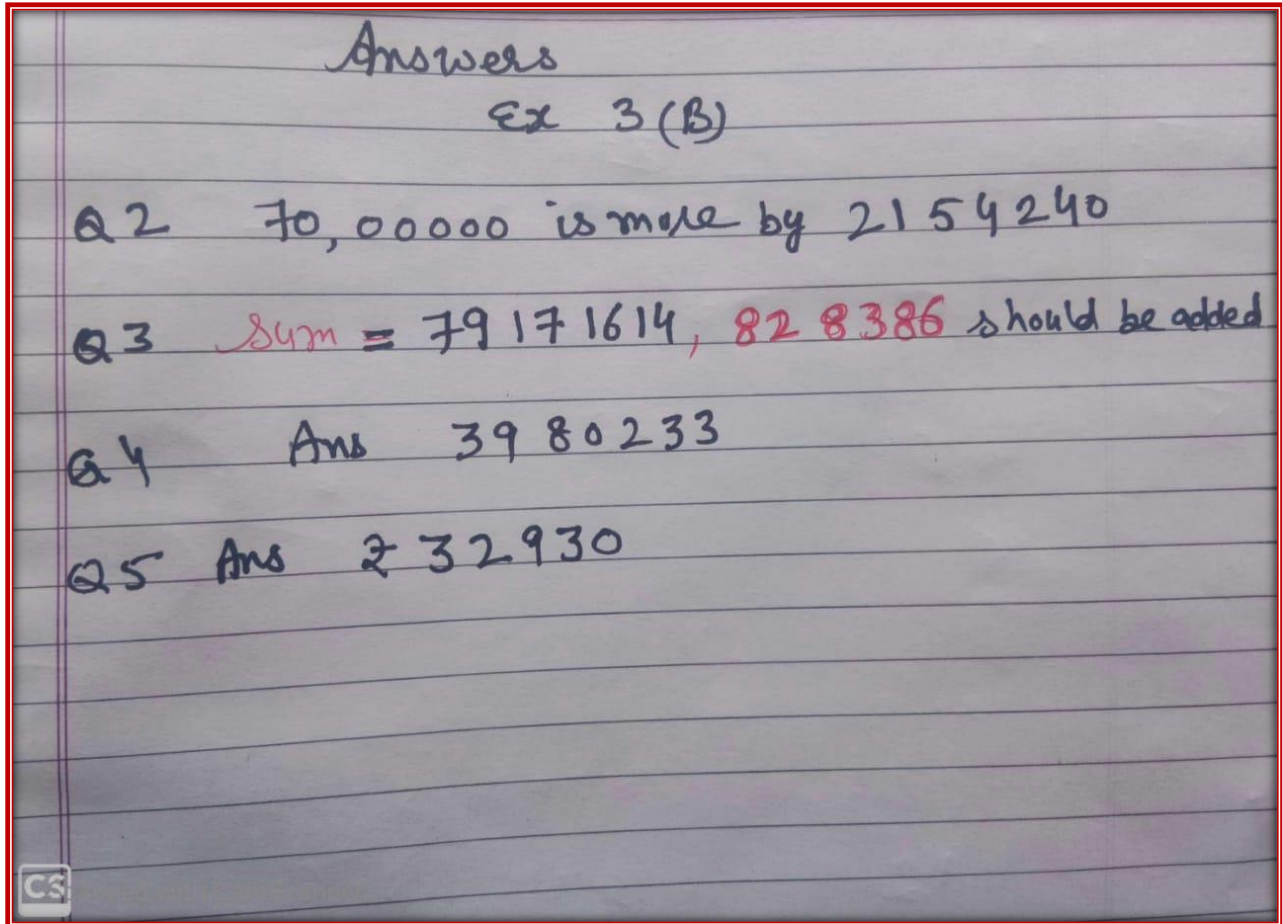 Answers
Ex 3 (B)
Q2 70,00000 is more by 2154240
Q3 Sum = 79171614, 828386 should be added
Q4 Ans 3980233
Q5 Ans ₹ 32930
CS